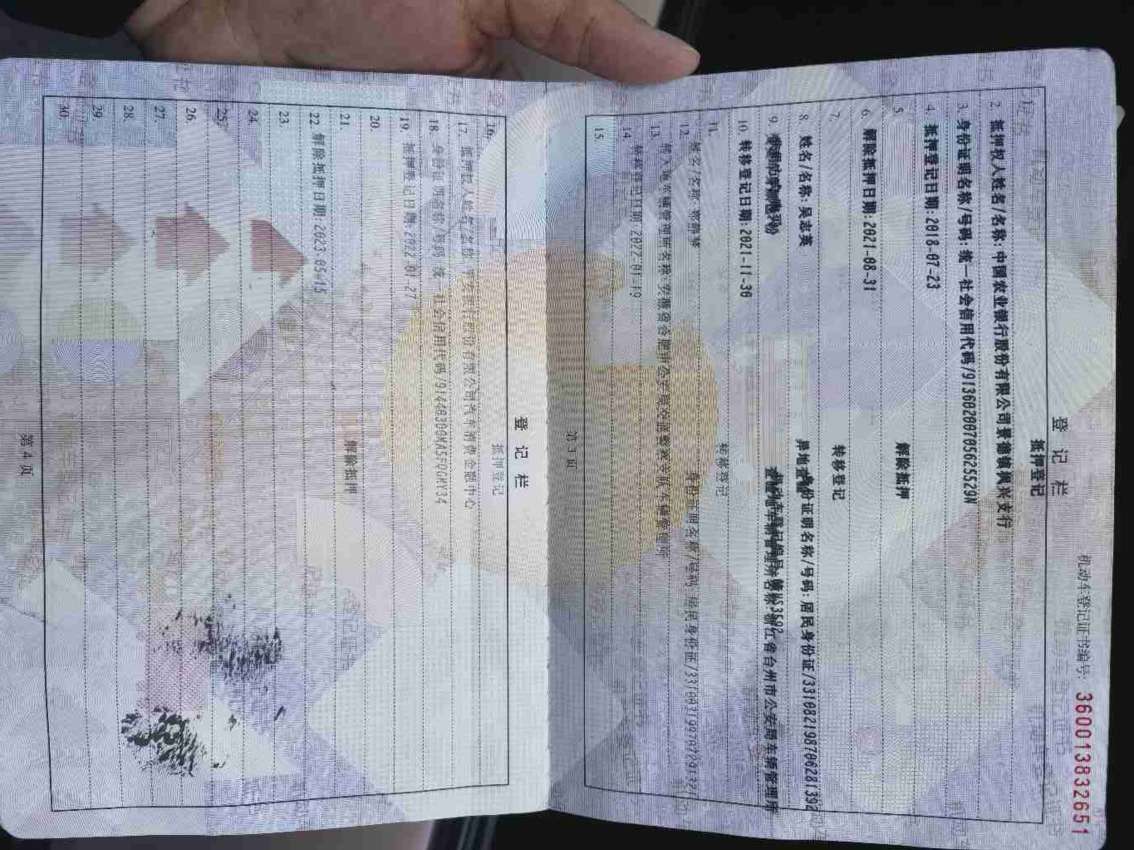 机动车登记证书编号: 360013832651
登记栏
1.
抵押登记
2. 抵押权人姓名/名称: 中国农业银行股份有限公司景德镇枫兴支行
3. 身份证明名称/号码: 统一社会信用代码/91360200705625529N
4. 抵押登记日期: 2018-07-23
5.
解除抵押
6. 解除抵押日期: 2021-08-31
7.
转移登记
8. 姓名/名称: 吴志英
身份证明名称/号码: 居民身份证/331082198706281392
9.
浙江省台州市公安局车辆管理所
10. 转移登记日期: 2021-11-30
11.
转移登记
12. 姓名/名称:
身份证明名称/号码: 居民身份证/
13. 转入地车辆管理所名称:
14. 转移登记日期: 2022-01-19
15.
第3页
登记栏
16.
抵押登记
17. 抵押权人姓名/名称: 平安银行股份有限公司汽车消费金融中心
18. 身份证明名称/号码: 统一社会信用代码/91440300MA5FQGMY34
19. 抵押登记日期: 2022-01-27
20.
21.
解除抵押
22. 解除抵押日期: 2023-05-15
23.
24.
25.
26.
27.
28.
29.
30.
第4页